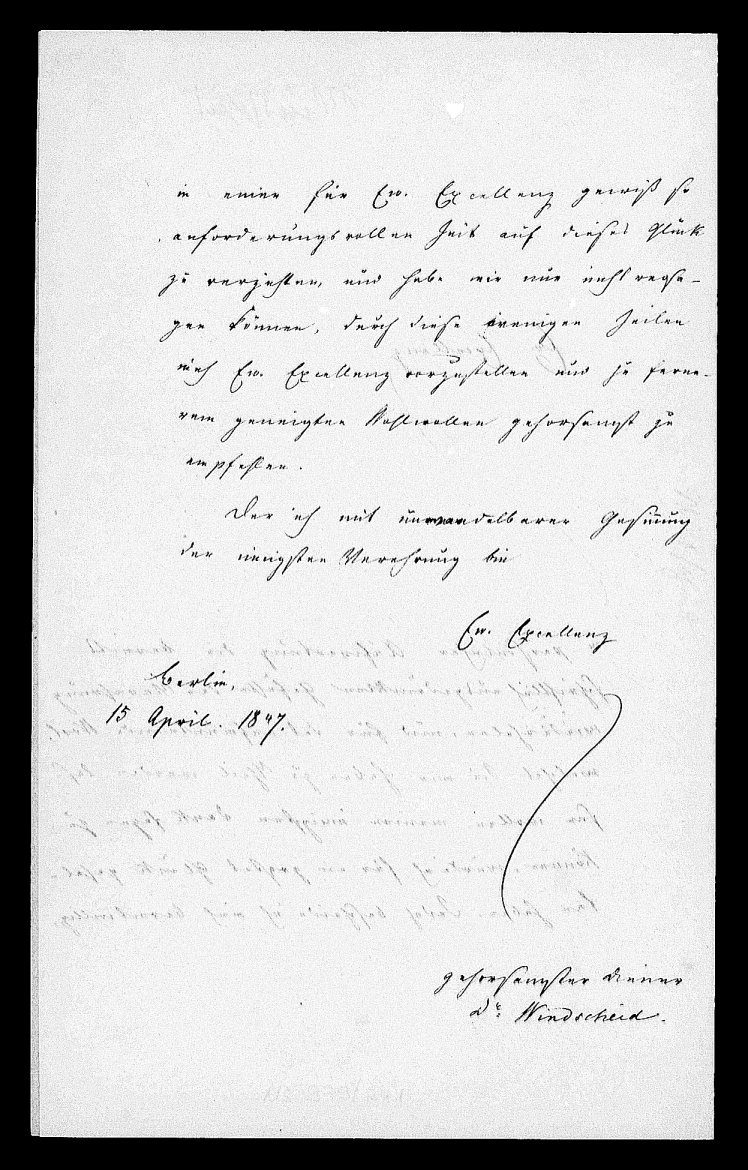 in einer für Ew. Excellenz gewiß so
anforderungsvollen Zeit auf dieses Glück
zu verzichten, und habe mir nur nicht versa-
gen können, durch diese wenigen Zeilen
mich Ew. Excellenz vorzustellen und zu ferne-
rem geneigten Wohlwollen gehorsamst zu
empfehlen.
Der ich mit unwandelbarer Gesinnung
der innigsten Verehrung bin
Ew. Excellenz
Berlin,
15 April. 1847.
gehorsamster Diener
Dr. Windscheid.